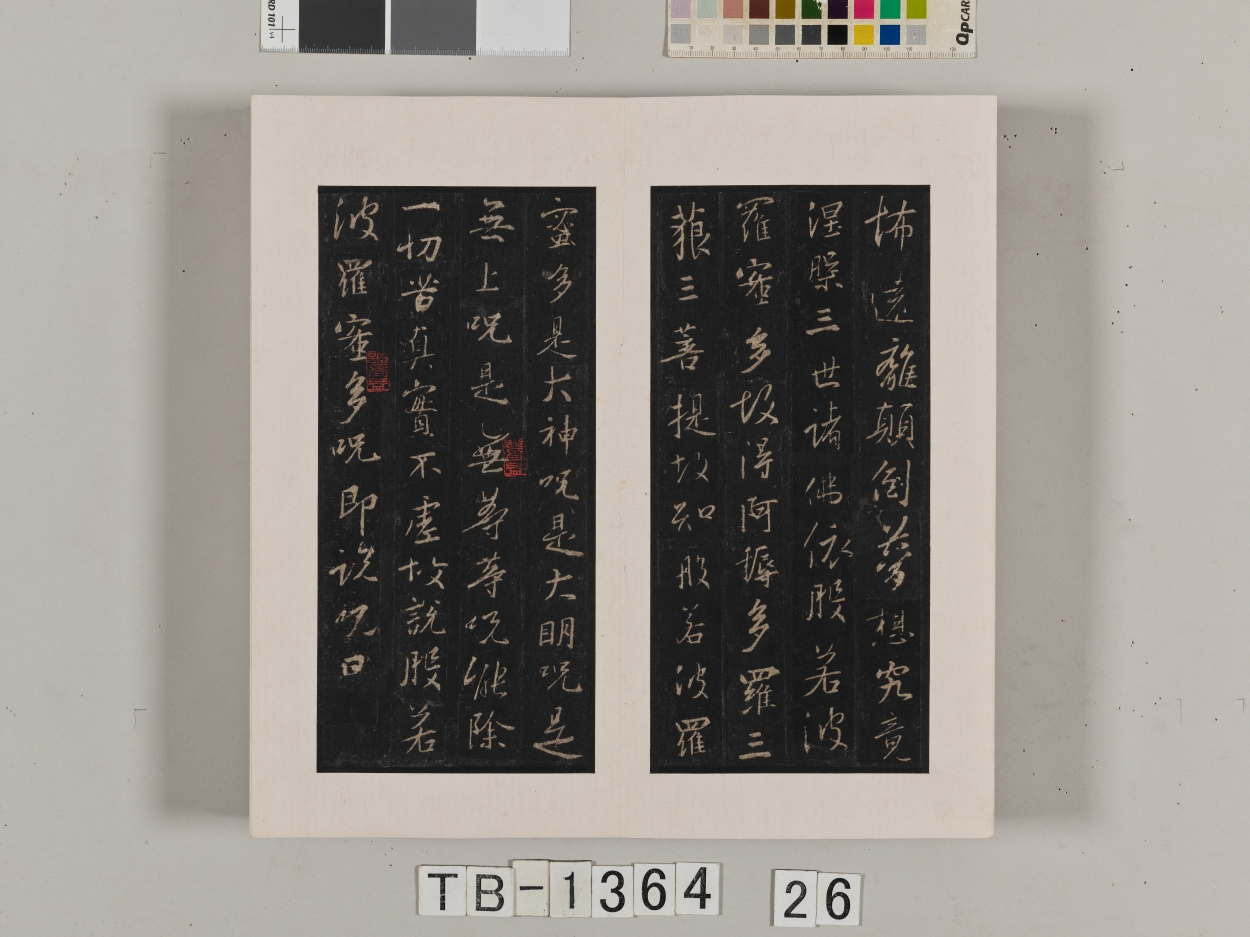 怖遠離顛倒夢想究竟
涅槃三世諸佛依般若波
羅蜜多故得阿耨多羅三
藐三菩提故知般若波羅
蜜多是大神呪是大明呪是
無上呪是無等等呪能除
一切苦真實不虛故說般若
波羅蜜多呪即說呪曰
TB-1364 26
QPCARD 101 v4
QPCARD